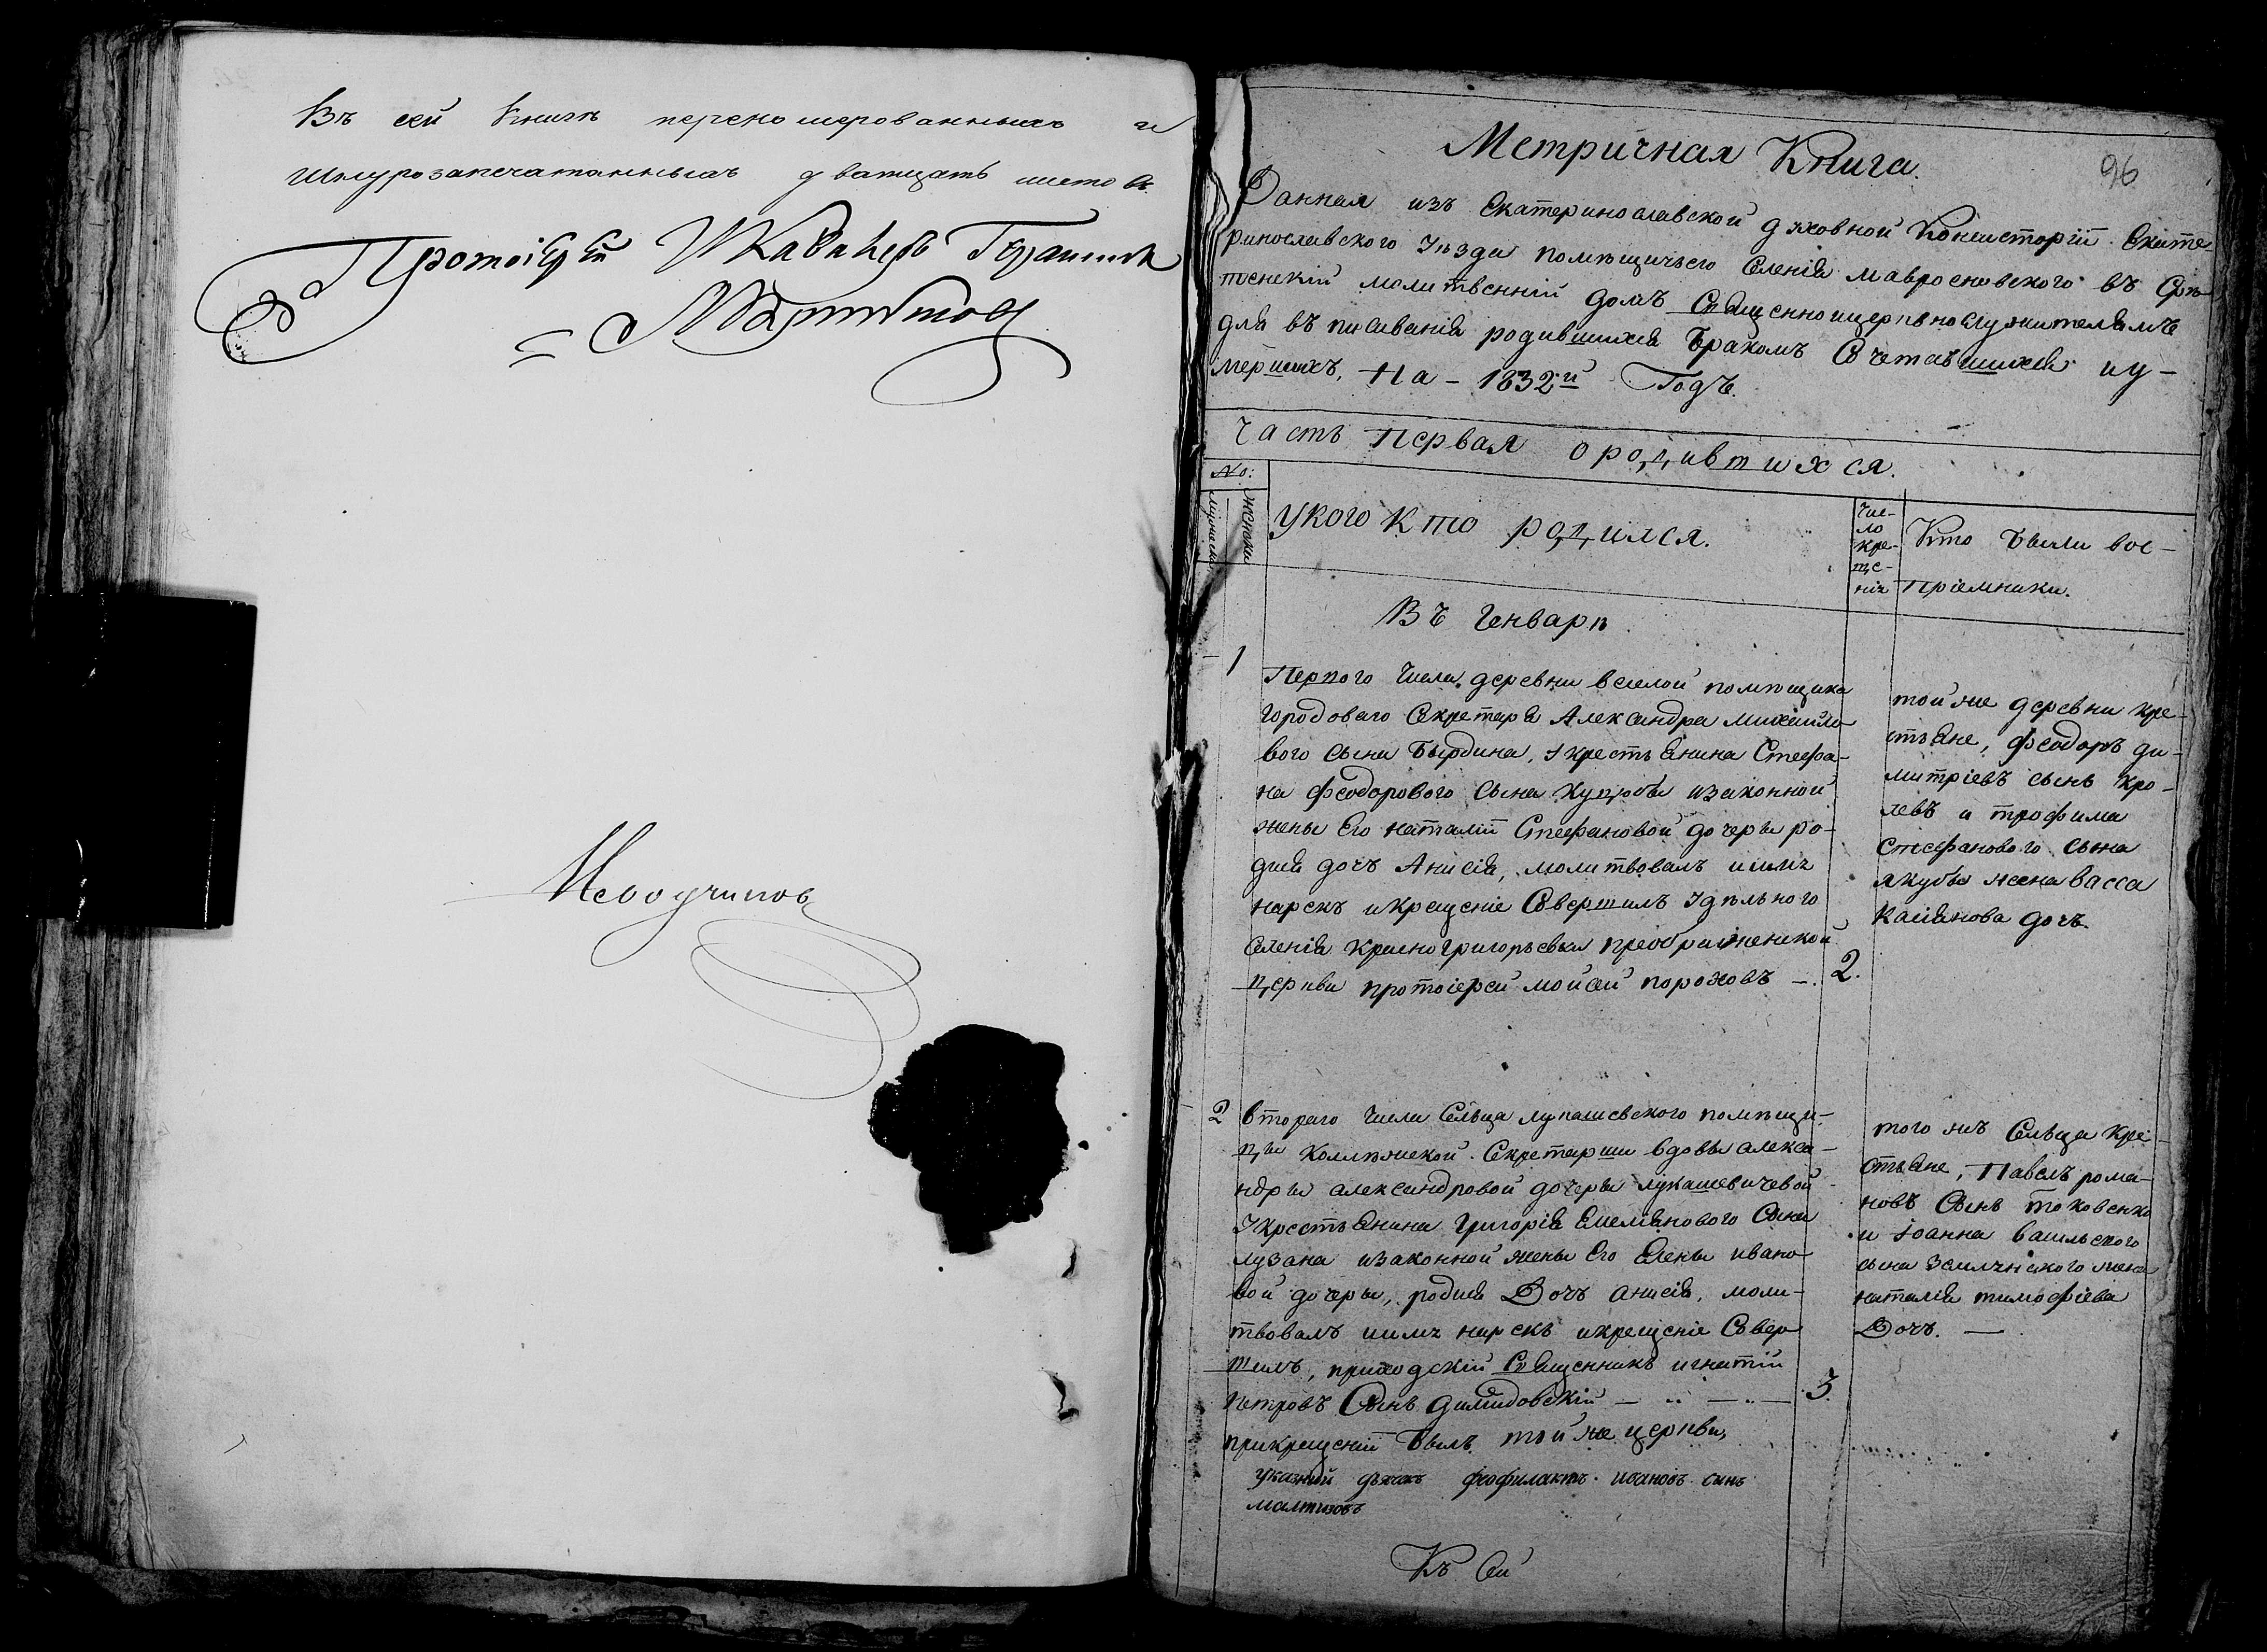 Въ сей Книгѣ переномерованныхъ и
шнурозапечатанныхъ дватцать листовъ
Протоіерей
96
Метричная Книга.
Данная изъ Екатеринославской дховной Консисторіи Екате
ринославского Уѣзда помѣщичьего Селенія Мавросновского въ Срѣ
тенскій молитвенній домъ Священноицерквнослужителямъ
для въписиванія родившихся Бракомъ Сочетавшихся иу-
мершихъ, На - 1832й Годъ.
Часть Первая ородившихся.
№:
мужеска
женска
укого кто родился.
Чис-
ло
кре-
ще-
нія
Кто Были вос-
пріемники.
Въ Генварѣ
1
Первого Числа деревни веселой помѣщика
городоваго Секретаря Александра михайло-
вого сына Бырдина, укрестьянина Стефа-
на феодорового сына изаконной
жены Его наталіи Стефановой дочеры ро-
дися дочъ Анисія, молитвовалъ иимя
нарекъ икрещеніе Совершилъ Удѣльного
Селенія красногригорьевки преображенской
церкви протоіерей мойсей пороховъ —. 2.
той же деревни кре-
стьяне, феодоръ ди-
митріевъ сынъ кро-
левъ и трофима
стефанового сына
якубы жена васса
касіянова дочъ.
2 втораго числа Сельца лукашевского помѣщи-
цы коллежской Секретарши вдовы алекса-
ндры александровой дочеры лукашевичевой
Укрестьянина григорія Емеліянового Сына
лузана изаконной жены Его Елены ивано
вой дочеры, родися Дочъ анисія, моли-
твовалъ иимя нарекъ икрещеніе Совер
шилъ, приходскій Священникъ игнатій
петровъ Сынъ димидовскій — .. — .. — 3.
прикрещеніи былъ той же церкви,
указній дьячокъ феофилактъ ивановъ синъ
того жъ Сельца кре-
стьяне, Павелъ рома-
новъ Сынъ токовенко
и іоанна васильского
сына жена
наталія тимофіева
Дочъ. —
Къ Сей